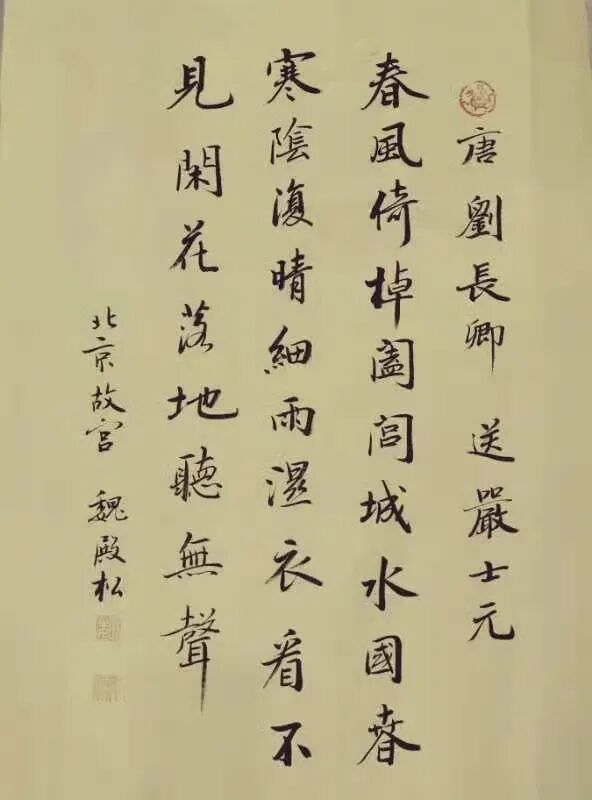 唐劉長卿 送嚴士元
春風倚棹闔閭城水國春
寒陰復晴細雨濕衣看不
見閑花落地聽無聲
北京故宮 魏殿松